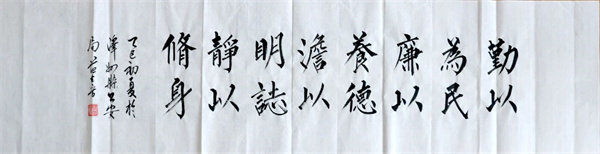 勤以
為民
廉以
養德
澹以
明誌
靜以
脩身
乙巳初夏於
澤州縣公安
局